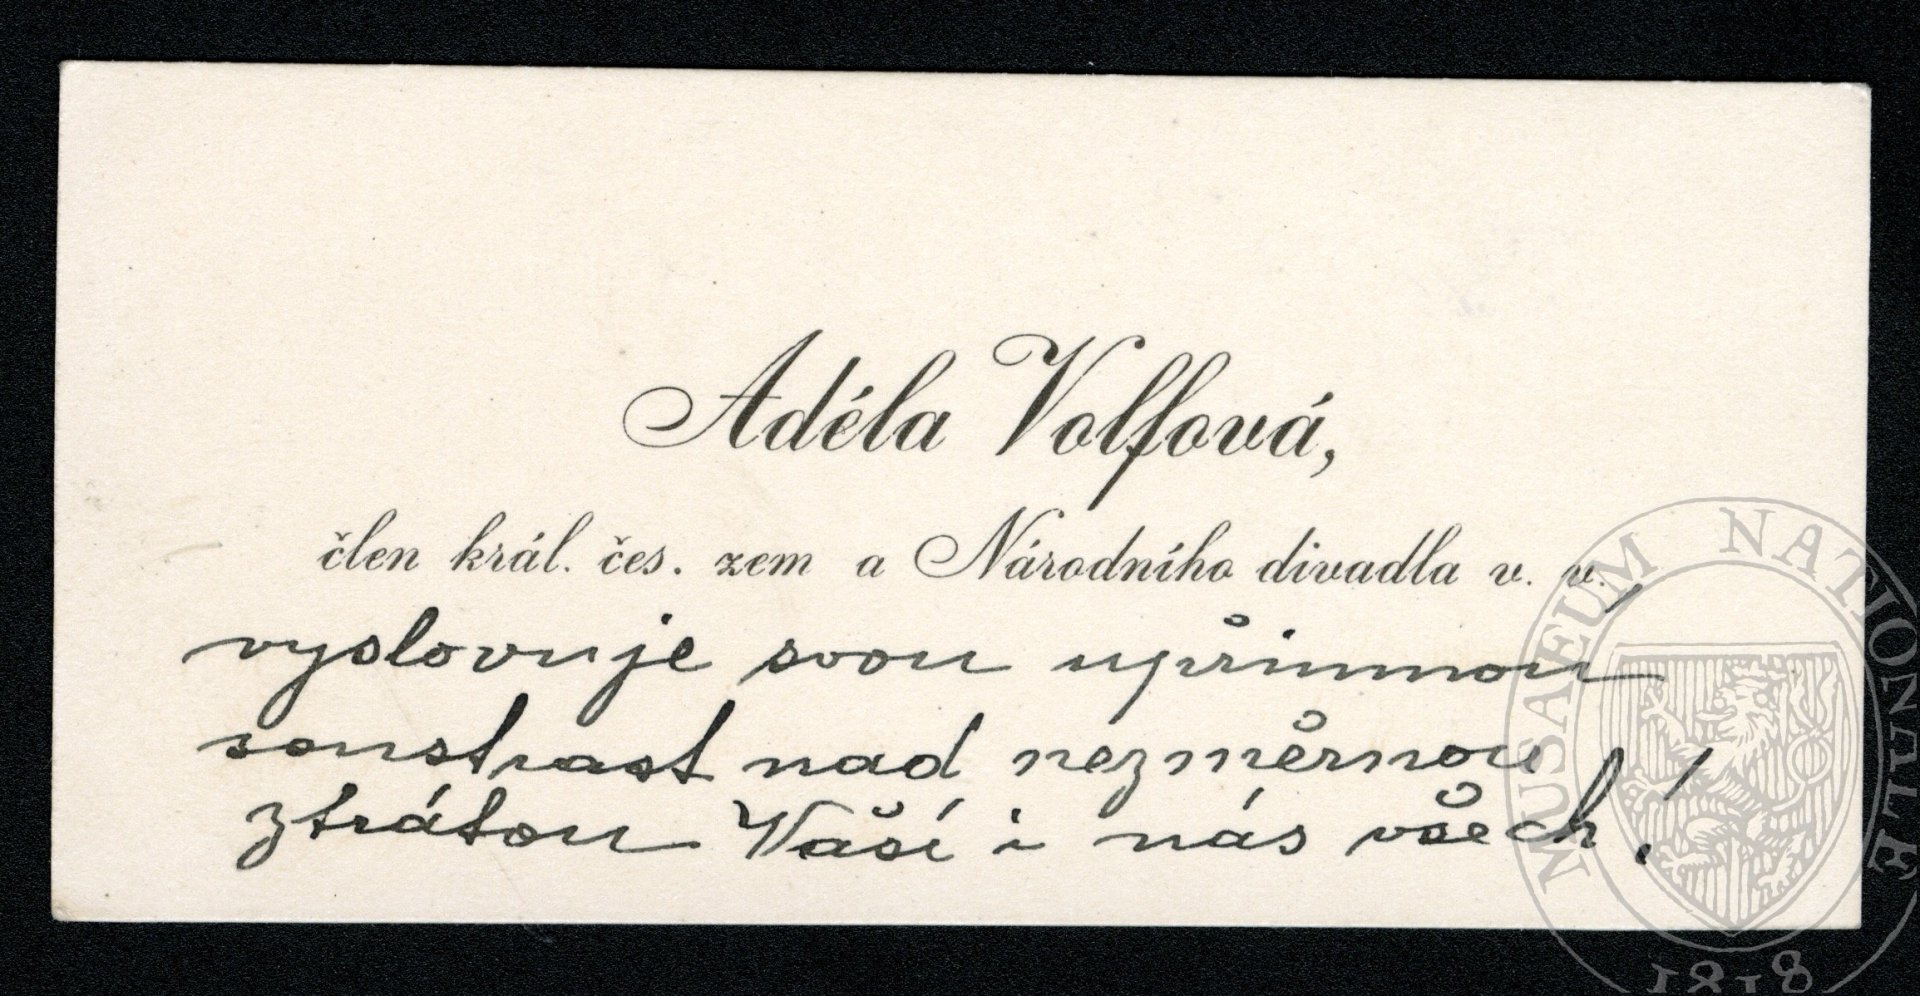 Adéla Volfová,
člen král. čes. zem a Národního divadla v. v.
vyslovuje svou upřimnou
soustrast nad nezměrnou
ztrátou Vaší i nás všech!
MUSAEUM NATIONALE
1818